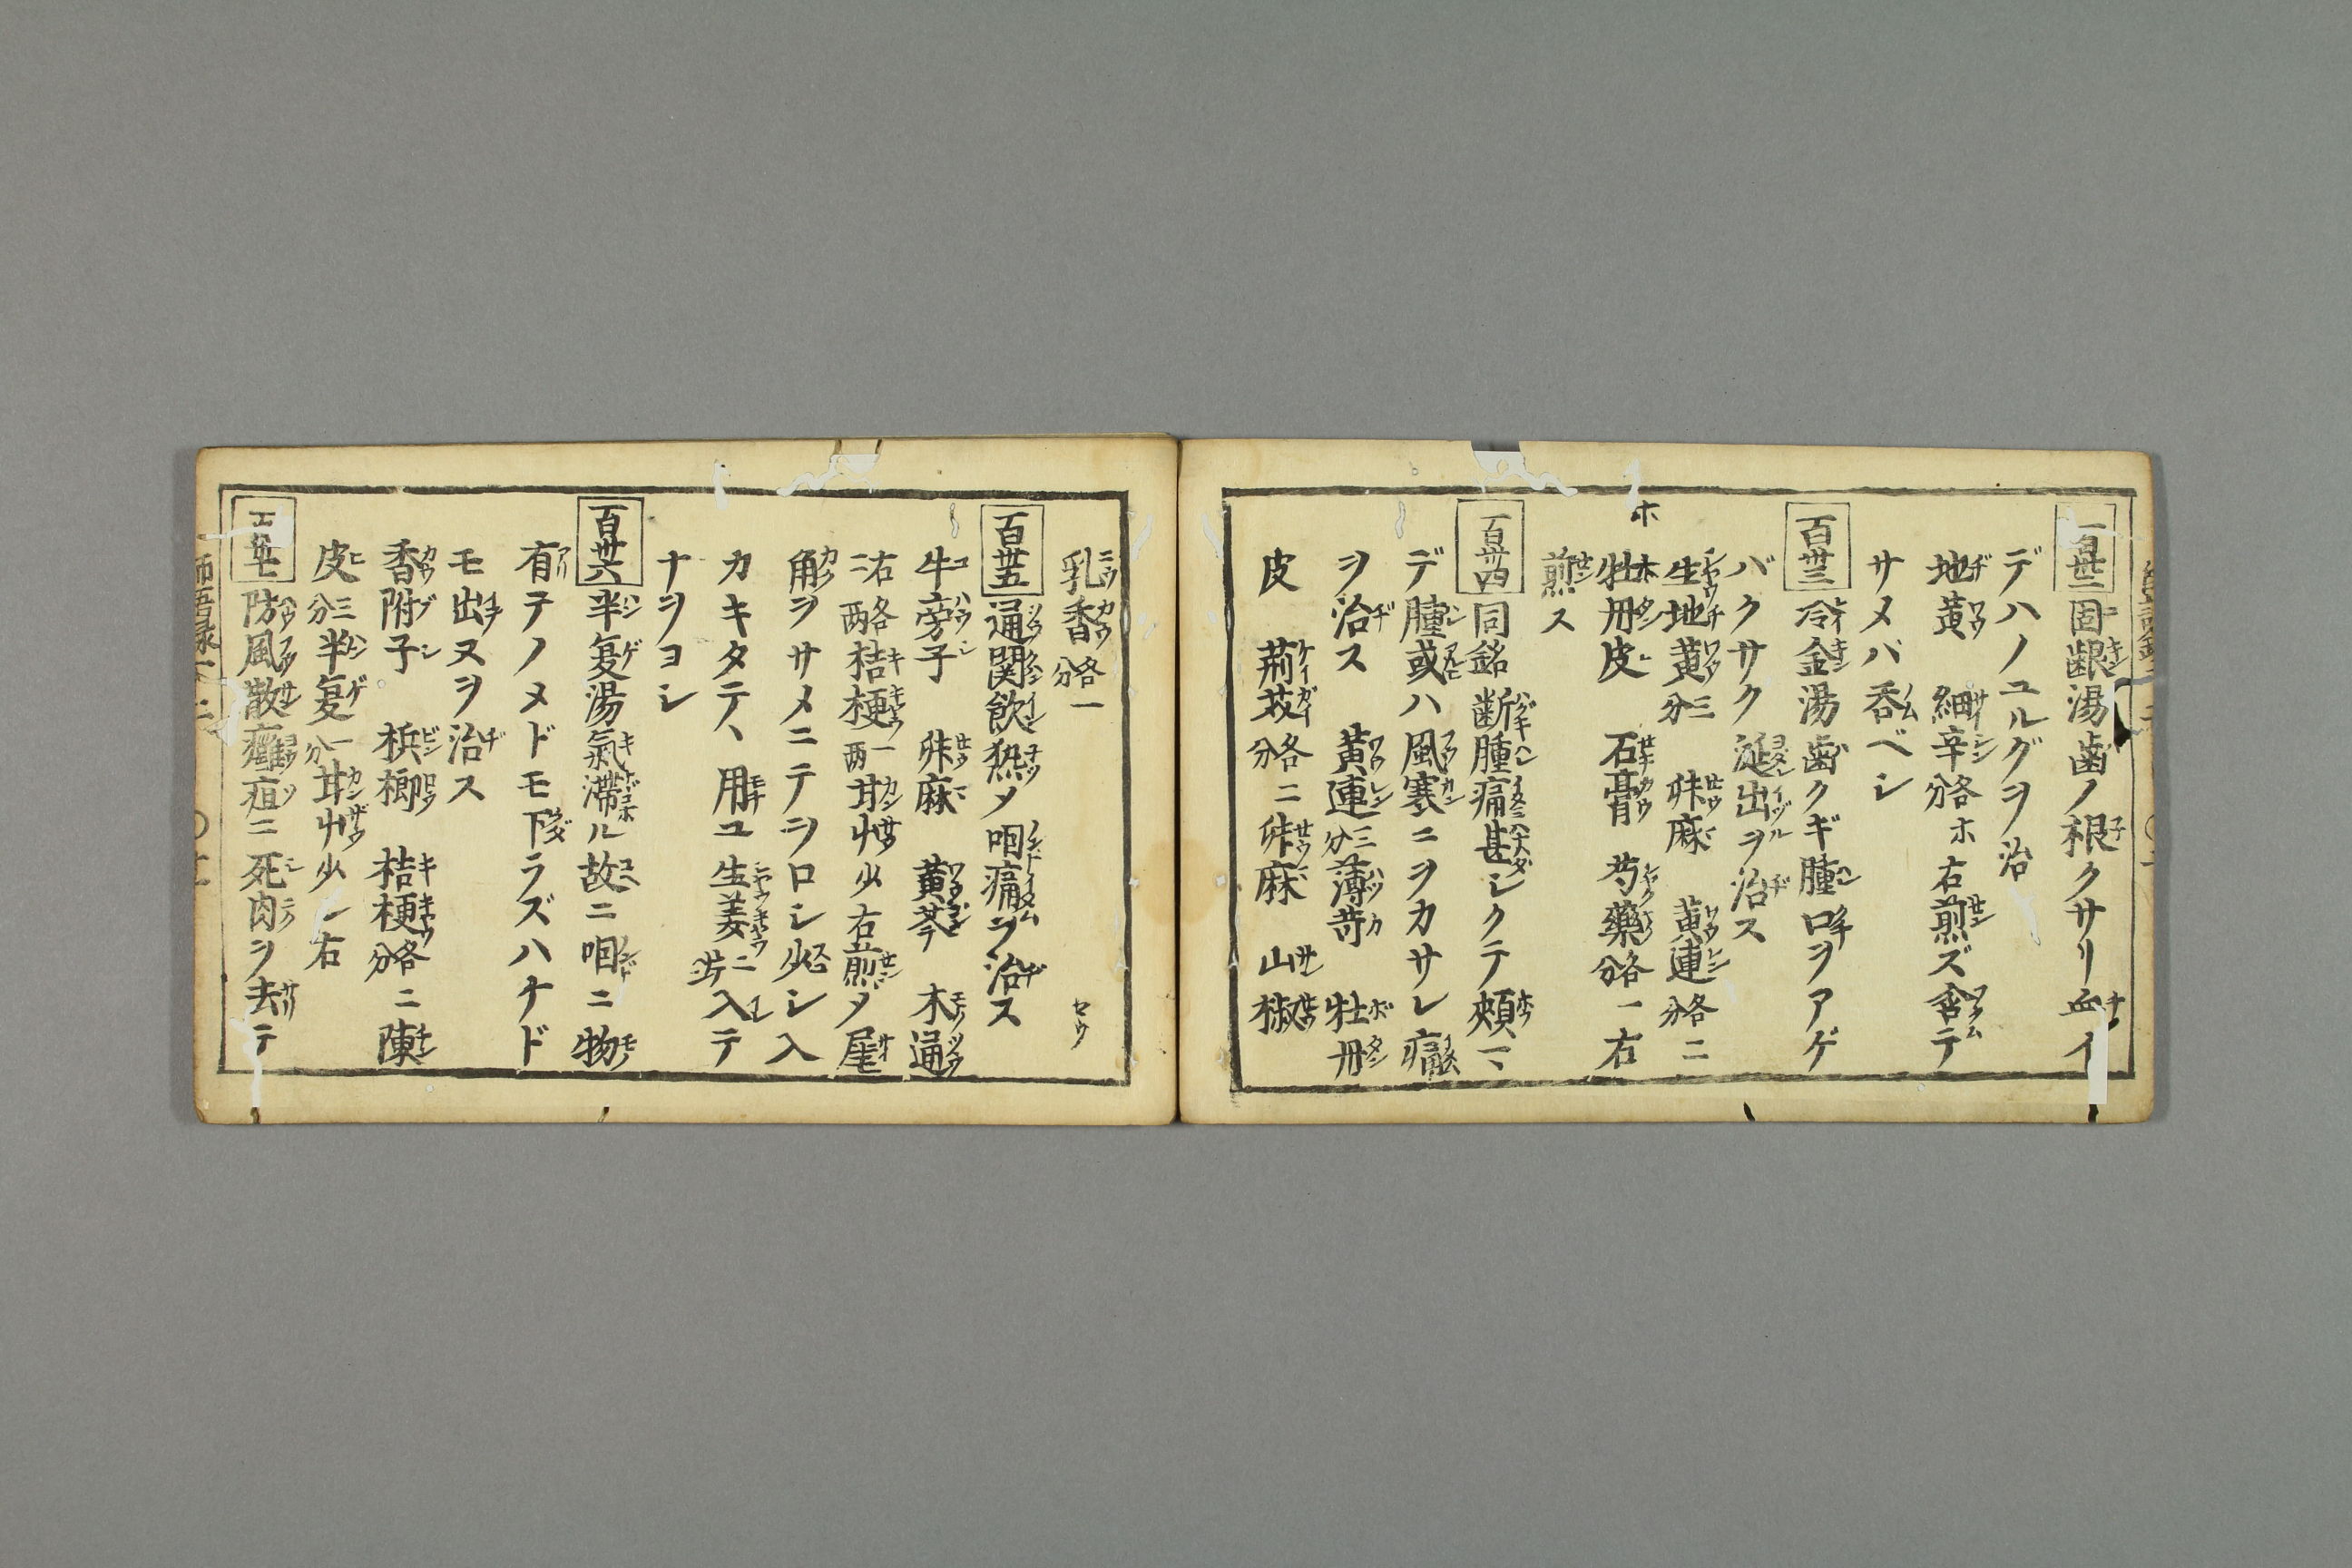 百卅二 固齦湯歯ノ根クサリ血イ
デハノユルグヲ治
地黄 細辛各分ホ右煎ズ含テ
サメバ呑ベシ
百卅三 冷金湯歯クギ腫口ヲアゲ
バクサク涎出ヲ治ス
生地黄三分 舛麻 黄連各二分
牡丹皮 石膏 芍藥各一分右
煎ス
百卅四 同銘 断腫痛甚シクテ頰ニ
デ腫或ハ風寒ニヲカサレ痛
ヲ治ス 黄連三分 薄苛 牡丹
皮 荊芥各二分 舛麻 山椒
乳香各一分
百卅五 通関飲熱メ咽痛ヲ治ス
牛旁子 舛麻 黄芩 木通
右各二両 桔梗一両 甘艸少右煎メ
角ヲサメニテヲロシ少シ入
カキタテヽ用ユ生姜二片入テ
ナヲヨシ
百卅六 半夏湯氣滞ル故ニ咽ニ物
有テノメドモ下ラズハケド
モ出ヌヲ治ス
香附子 梹榔 桔梗各二分 陳
皮三分 半夏一分 甘艸少シ右
防風散癰疽ニ死肉ヲ去テ